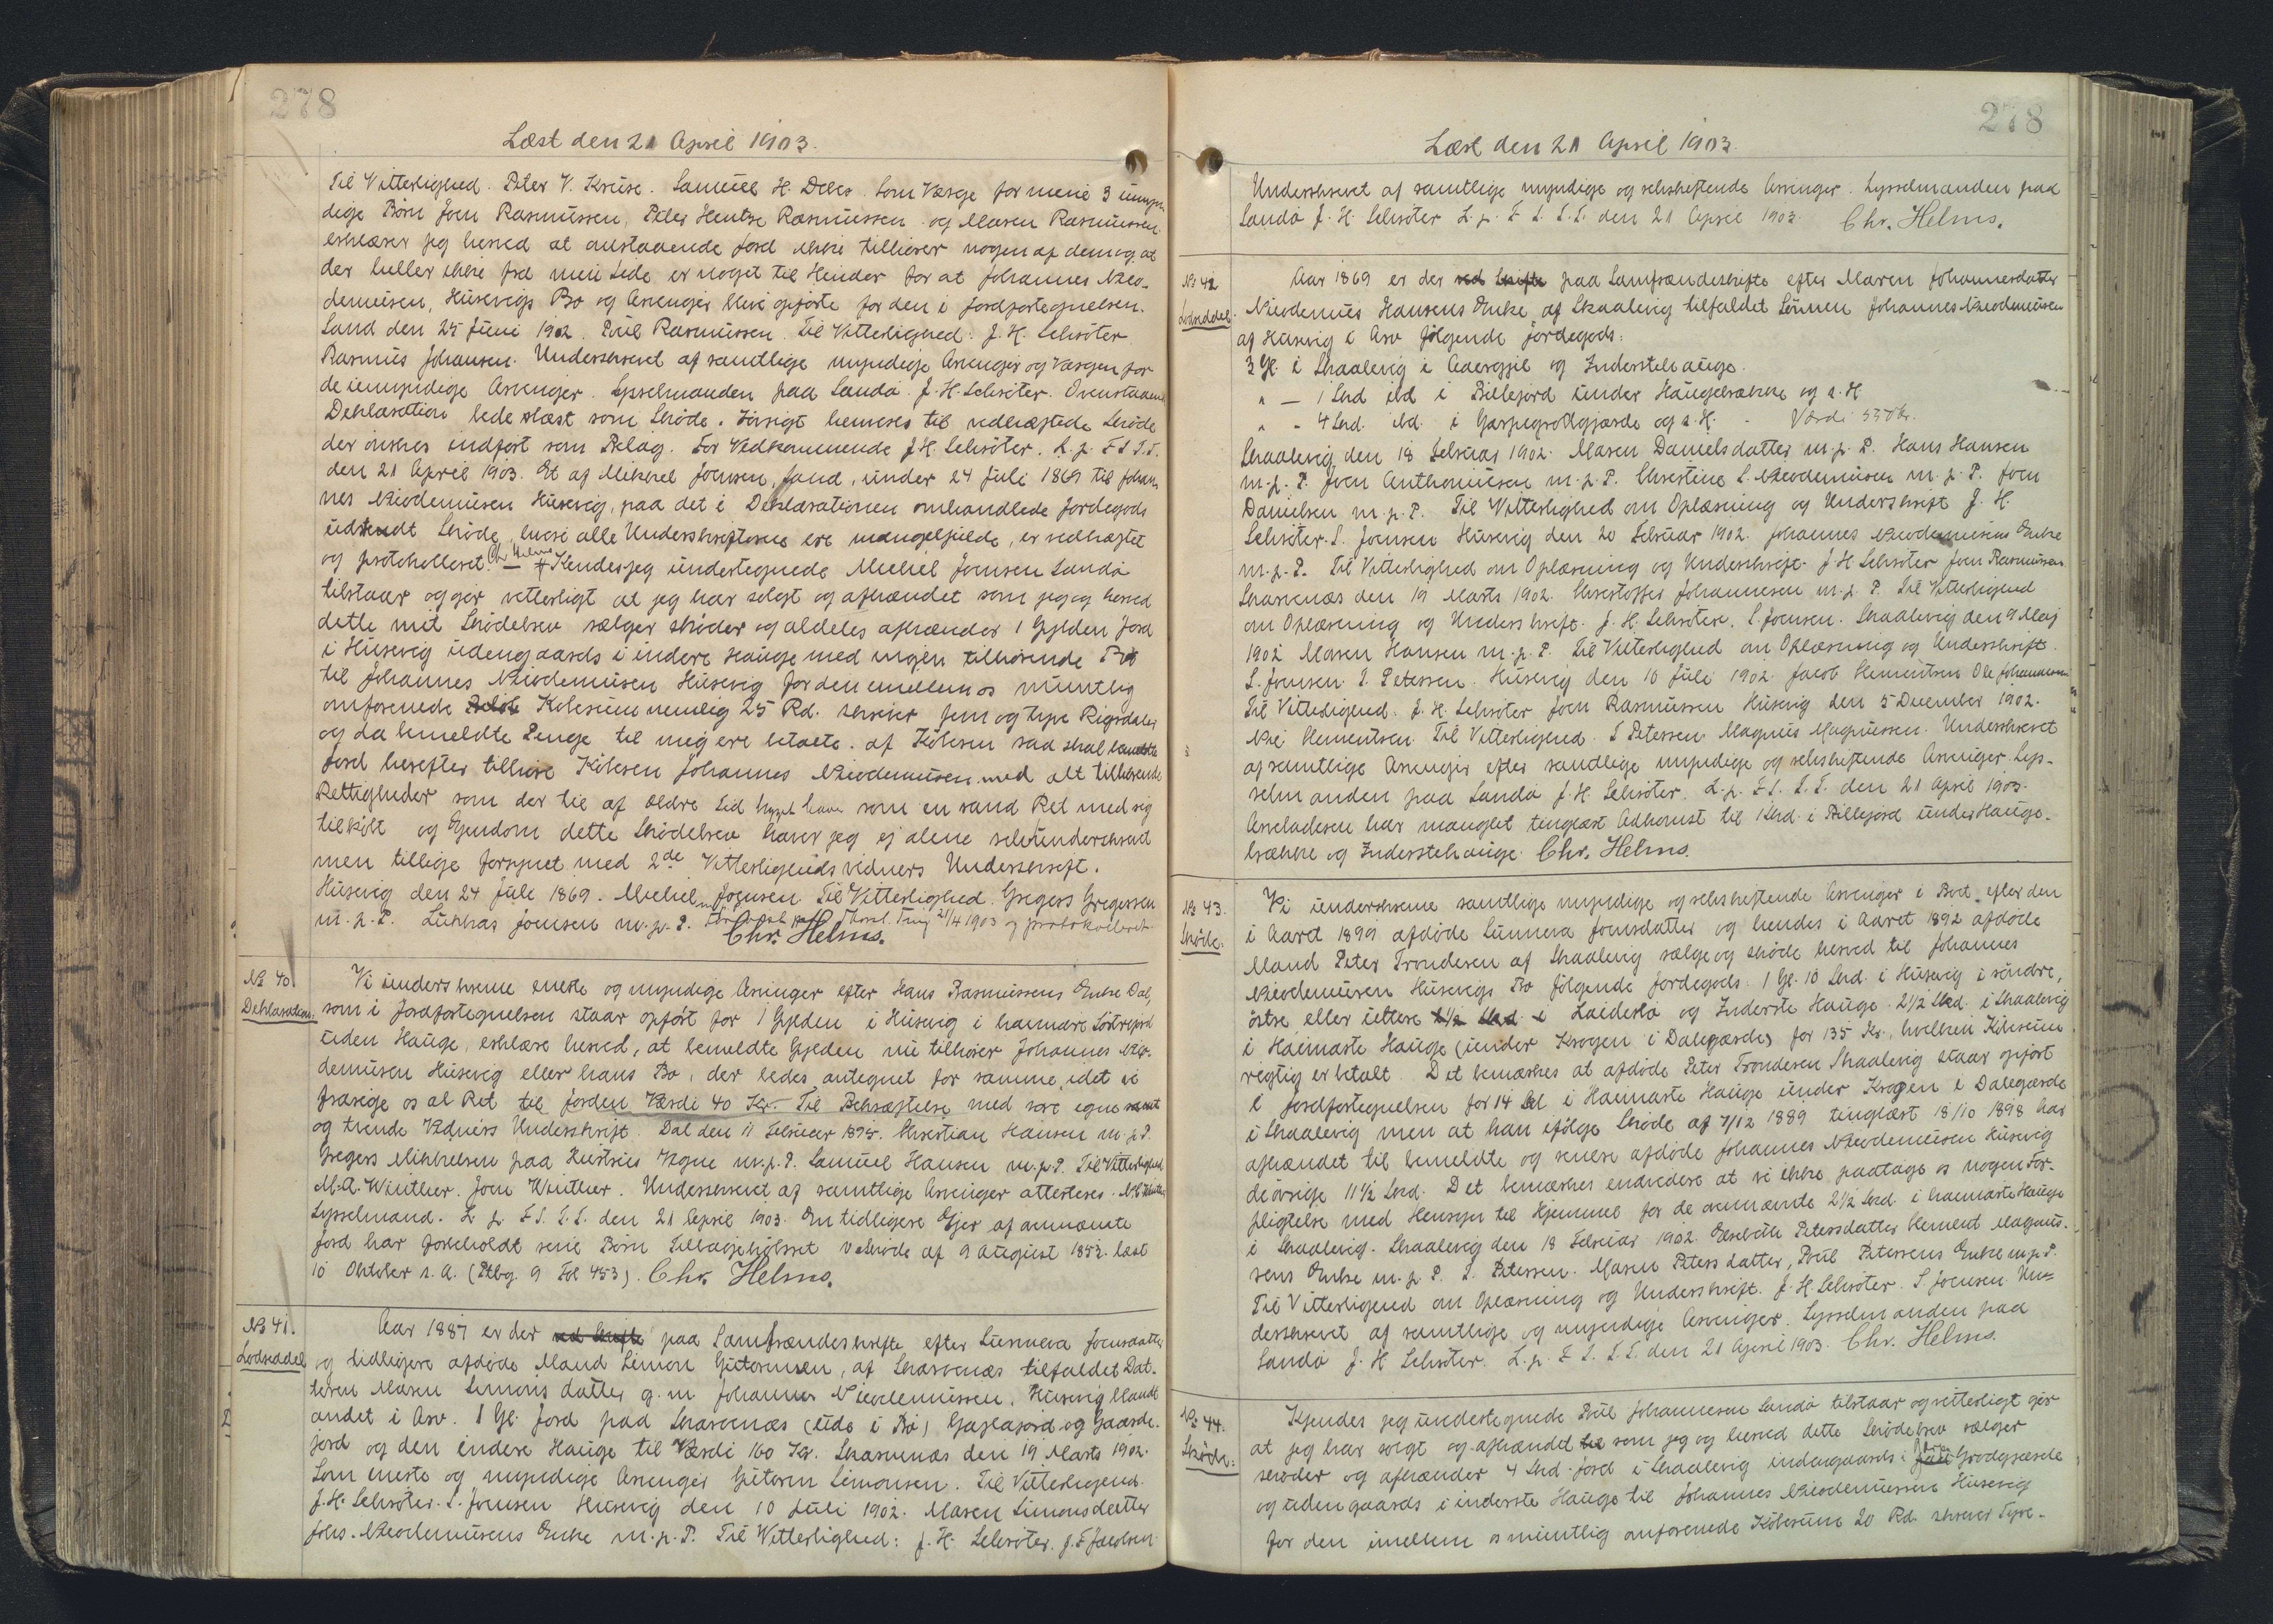 278
Læst den 21 April 1903.
Til Vitterlighed. Peter V. Kruse. Samuel H. Debes. Som Værge for mine 3 umyn
dige Børn Joen Rasmussen, Peter Hentze Rasmussen og Maren Rasmussen
erklærer jeg herved at anstaaende Jord ikke tilhører nogen af dem og at
der heller ikke fra min Side er noget til Hinder for at Johannes Nico-
demusen, Husevigs Bo og Arvinger blive opførte for den i Jordfortegnelsen.
Sand den 25 Juni 1902. Poul Rasmussen. Til Vitterlighed: J. H. Schrøter
Rasmus Johansen. Underskrevet af samtlige myndige Arvinger og Værgen for
de umyndige Arvinger. Sysselmanden paa Sandø J. H. Schrøter. Ovenstaaende
Deklaration bedes læst som Skøde. Iøvrigt henvises til vedhæftede Skøde
der ønskes indført som Bilag. For Vedkommende J. H. Schrøter. L. p. F S S. T.
den 21 April 1903. Et af Mikkel Joensen, Sand, under 24 Juli 1869 til Johan
nes Nicodemusen Husevig, paa det i Deklarationen omhandlede Jordegods
udstædt Skøde, hvori alle Underskrifterne ere mangelfulde, er vedhæftet
og protokolleret. Chr Helms Kendes jeg undertegnede Michel Joensen Sandø
tilstaar og gør vetterligt at jeg har solgt og afhændet som jeg og herved
dette mit Skødebrev sælger skøder og aldeles afhænder 1 Gylden Jord
i Husevig udengaards i indere Hauge med ingen tilhørende
til Johannes Nicodemusen Husevig for den emellem os mundtlig
omforenede Købesum nemlig 25 Rd. skriver fem og tyve Rigsdaler
og da bemeldte Penge til mig ere betalte af Køberen saa skal bemeldte
Jord herefter tilhøre Køberen Johannes Nicodemusen med alt tilhørende
Rettigheder som der til af ældre tid ligget have som en sand Ret med sig
tilkøbt og Ejendom dette Skødebrev haver jeg ej alene selv underskrevet
men tillige forsynet med 2de Vitterligheds vidners Underskrift.
Husevig den 24 Juli 1869. Michel Joensen Til Vitterlighed. Gregers Gregersen
m. p. P. Lukkas Joensen m. p. P. Thorsh. Ting 21/4 1903 og protokolleret
Chr. Helms.
No 40
Deklaration:
Vi underskrevne eneste og myndige Arvinger efter Hans Rasmussens Enke Dal,
som i Jordfortegnelsen staar opført for 1 Gylden i Husevig i
uden Hauge, erklære herved, at bemeldte Gylden nu tilhører Johannes Nico-
demusen Husevig eller hans Bo, der bedes antegnet for samme, idet vi
frasige os al Ret til Jorden Værdi 40 Kr. Til Bekræftelse med vore egne samt
og tvende Vidners Underskrift. Dal den 11 Februar 1895. Christian Hansen m. p. P.
Gregers Mikkelsen paa Hustrus Vegne m. p. P. Samuel Hansen m. p. P. Til Vitterlighed
M. A. Winther. Joen Winther. Underskrevet af samtlige Arvinger attesteres.
Sysselmand. L. p. F S. S. T. den 21 April 1903. En tidligere Ejer af omnævnte
Jord har forbeholdt sine Børn Tilbagekøbsret v Skøde af 9 August 1853. læst
10 Oktober s. A. (Ptbg. 9 Fol 453). Chr. Helms.
No 41.
Lodseddel
Aar 1887 er der paa Samfrændeskifte efter Sunneva Joensdatter
og tidligere afdøde Mand Simon Guttormsen, af Skarvenæs tilfaldet Dat-
teren Maren Simons datter g. m. Johannes Nicodemussen, Husevig blandt
andet i Arv. 1 Gl. Jord paa Skarvenæs (ude i Bø) og Gaarde-
jord og den indere Hauge til Værdi 160 Kr. Skarvenæs den 19 Marts 1902.
Som eneste og myndige Arvinger Guttorm Simonsen. Til Vitterlighed.
J. H. Schrøter. S. Joensen Husevig den 10 Juli 1902. Maren Simonsdatter
Johs. Nicodemusens Enke m. p. P. Til Witterlighed: J. H. Schrøter. J. F. Jacobsen
278
Læst den 21 April 1903.
Underskrevet af samtlige myndige og selvhæftende Arvinger. Sysselmanden paa
Sandø J. H. Schrøter L. p. F S. S. T. den 21 April 1903. Chr. Helms.
No 42
Lodseddel.
Aar 1869 er der ved Skifte paa Samfrændeskifte efter Maren Johannesdatter
Nicodemus Hansens Enke af Skaalevig tilfaldet Sønnen Johannes Nicodemusen
af Husevig i Arv følgende Jordegods:
3 Gl. i Skaalevig i og Inderstehauge.
" — 1 Skd ibd i Billejord under Haugebrække og s. H
" - 4 Skd. ibd. i og s. H. - Værdi 33 Kr.
Skaalevig den 18 Februar 1902. Maren Danielsdatter m. p. P. Hans Hansen
m. p. P. Joen Anthoniusen m. p. P. Christine S. Nicodemusen m. p. P. Joen
Danielsen m. p. P. Til Witterlighed om Oplæsning og Underskrift J. H.
Schrøter. S. Joensen Husevig den 20 Februar 1902. Johannes Nicodemusens Enke
m. p. P. Til Vitterlighed om Oplæsning og Underskrift. J. H Schrøter Joen Rasmussen
Skarvenæs den 19 Marts 1902. Christoffer Johannesen m. p. P. Til Vitterlighed
om Oplæsning og Underskrift. J. H. Schrøter. S. Joensen. Skaalevig den 9 Maj
1902 Maren Hansen m. p. P. Til Vitterlighed om Oplæsning og Underskrift.
S. Joensen. S. Petersen. Husevig den 10 Juli 1902. Jacob Clementsen Ole Johannesen
Til Vitterlighed. J. H. Schrøter Joen Rasmussen Husevig den 5 December 1902.
Clementsen. Til Vitterlighed. S Petersen Magnus Magnussen. Underskrevet
af samtlige Arvinger efter samtlige myndige og selvhæftende Arvinger. Sys-
selmanden paa Sandø J. H. Schrøter. L. p. F S. S. T. den 21 April 1903.
Arveladeren har manglet tinglæst Adkomst til 1 Skd. i Billejord under Hauge-
brække og Inderstehauge. Chr. Helms.
No 43.
Skøde:
Vi underskrevne samtlige myndige og selvhæftende Arvinger i Boet efter den
i Aaret 1899 afdøde Sunneva Joensdatter og hendes i Aaret 1892 afdøde
Mand Peter Trondesen af Skaalevig sælge og skøde herved til Johannes
Nicodemusen Husevigs Bo følgende Jordegods. 1 Gl. 10 Skd. i Husevig i søndre,
østre eller uttere i og Inderste Hauge. 2½ Skd. i Skaalevig
i Heimaste Hauge (under Krogen i Dalegærde) for 135 Kr., hvilken Købesum
regtig er betalt. Det bemærkes at afdøde Peter Trondesen Skaalevig staar opført
i Jordfortegnelsen for 14 Skd i Heimaste Hauge under Krogen i Dalegærde
i Skaalevig men at han ifølge Skøde af 7/12 1889 tinglæst 18/10 1898 har
afhændet til bemeldte og senere afdøde Johannes Nicodemusen Husevig
de øvrige 11½ Skd. Det bemærkes endvidere at vi ikke paatage os nogen For-
pligtelse med Hensyn til Hjemmel for de ovennævnte 2½ Skd. i heimaste Hauge
i Skaalevig. Skaalevig den 18 Februar 1902. Elsebeth Petersdatter Clement Magnus-
sens Enke m. p. P. S. Petersen. Maren Peters datter, Poul Petersens Enke m. p. P.
Til Vitterlighed om Oplæsning og Underskrift. J. H. Schrøter. S. Joensen. Un-
derskrevet af samtlige og myndige Arvinger. Sysselmanden paa
Sandø J. H Schrøter. L. p. F S. S. T. den 21 April 1903. Chr. Helms.
No 44.
Skøde:
Kjendes jeg undertegnede Poul Johannesen Sandø tilstaar og vitterligt gør
at jeg har solgt og afhændet til som jeg og herved dette Skødebrev sælger
skøder og afhænder 4 Skd. Jord i Skaalevig indengaards i Grodgærde
og udengaards i inderste Hauge til Johannes Nicodemussen Husevig
for den imellem os mundtlig omforenede Købesum 20 Rd. skriver Tyve-